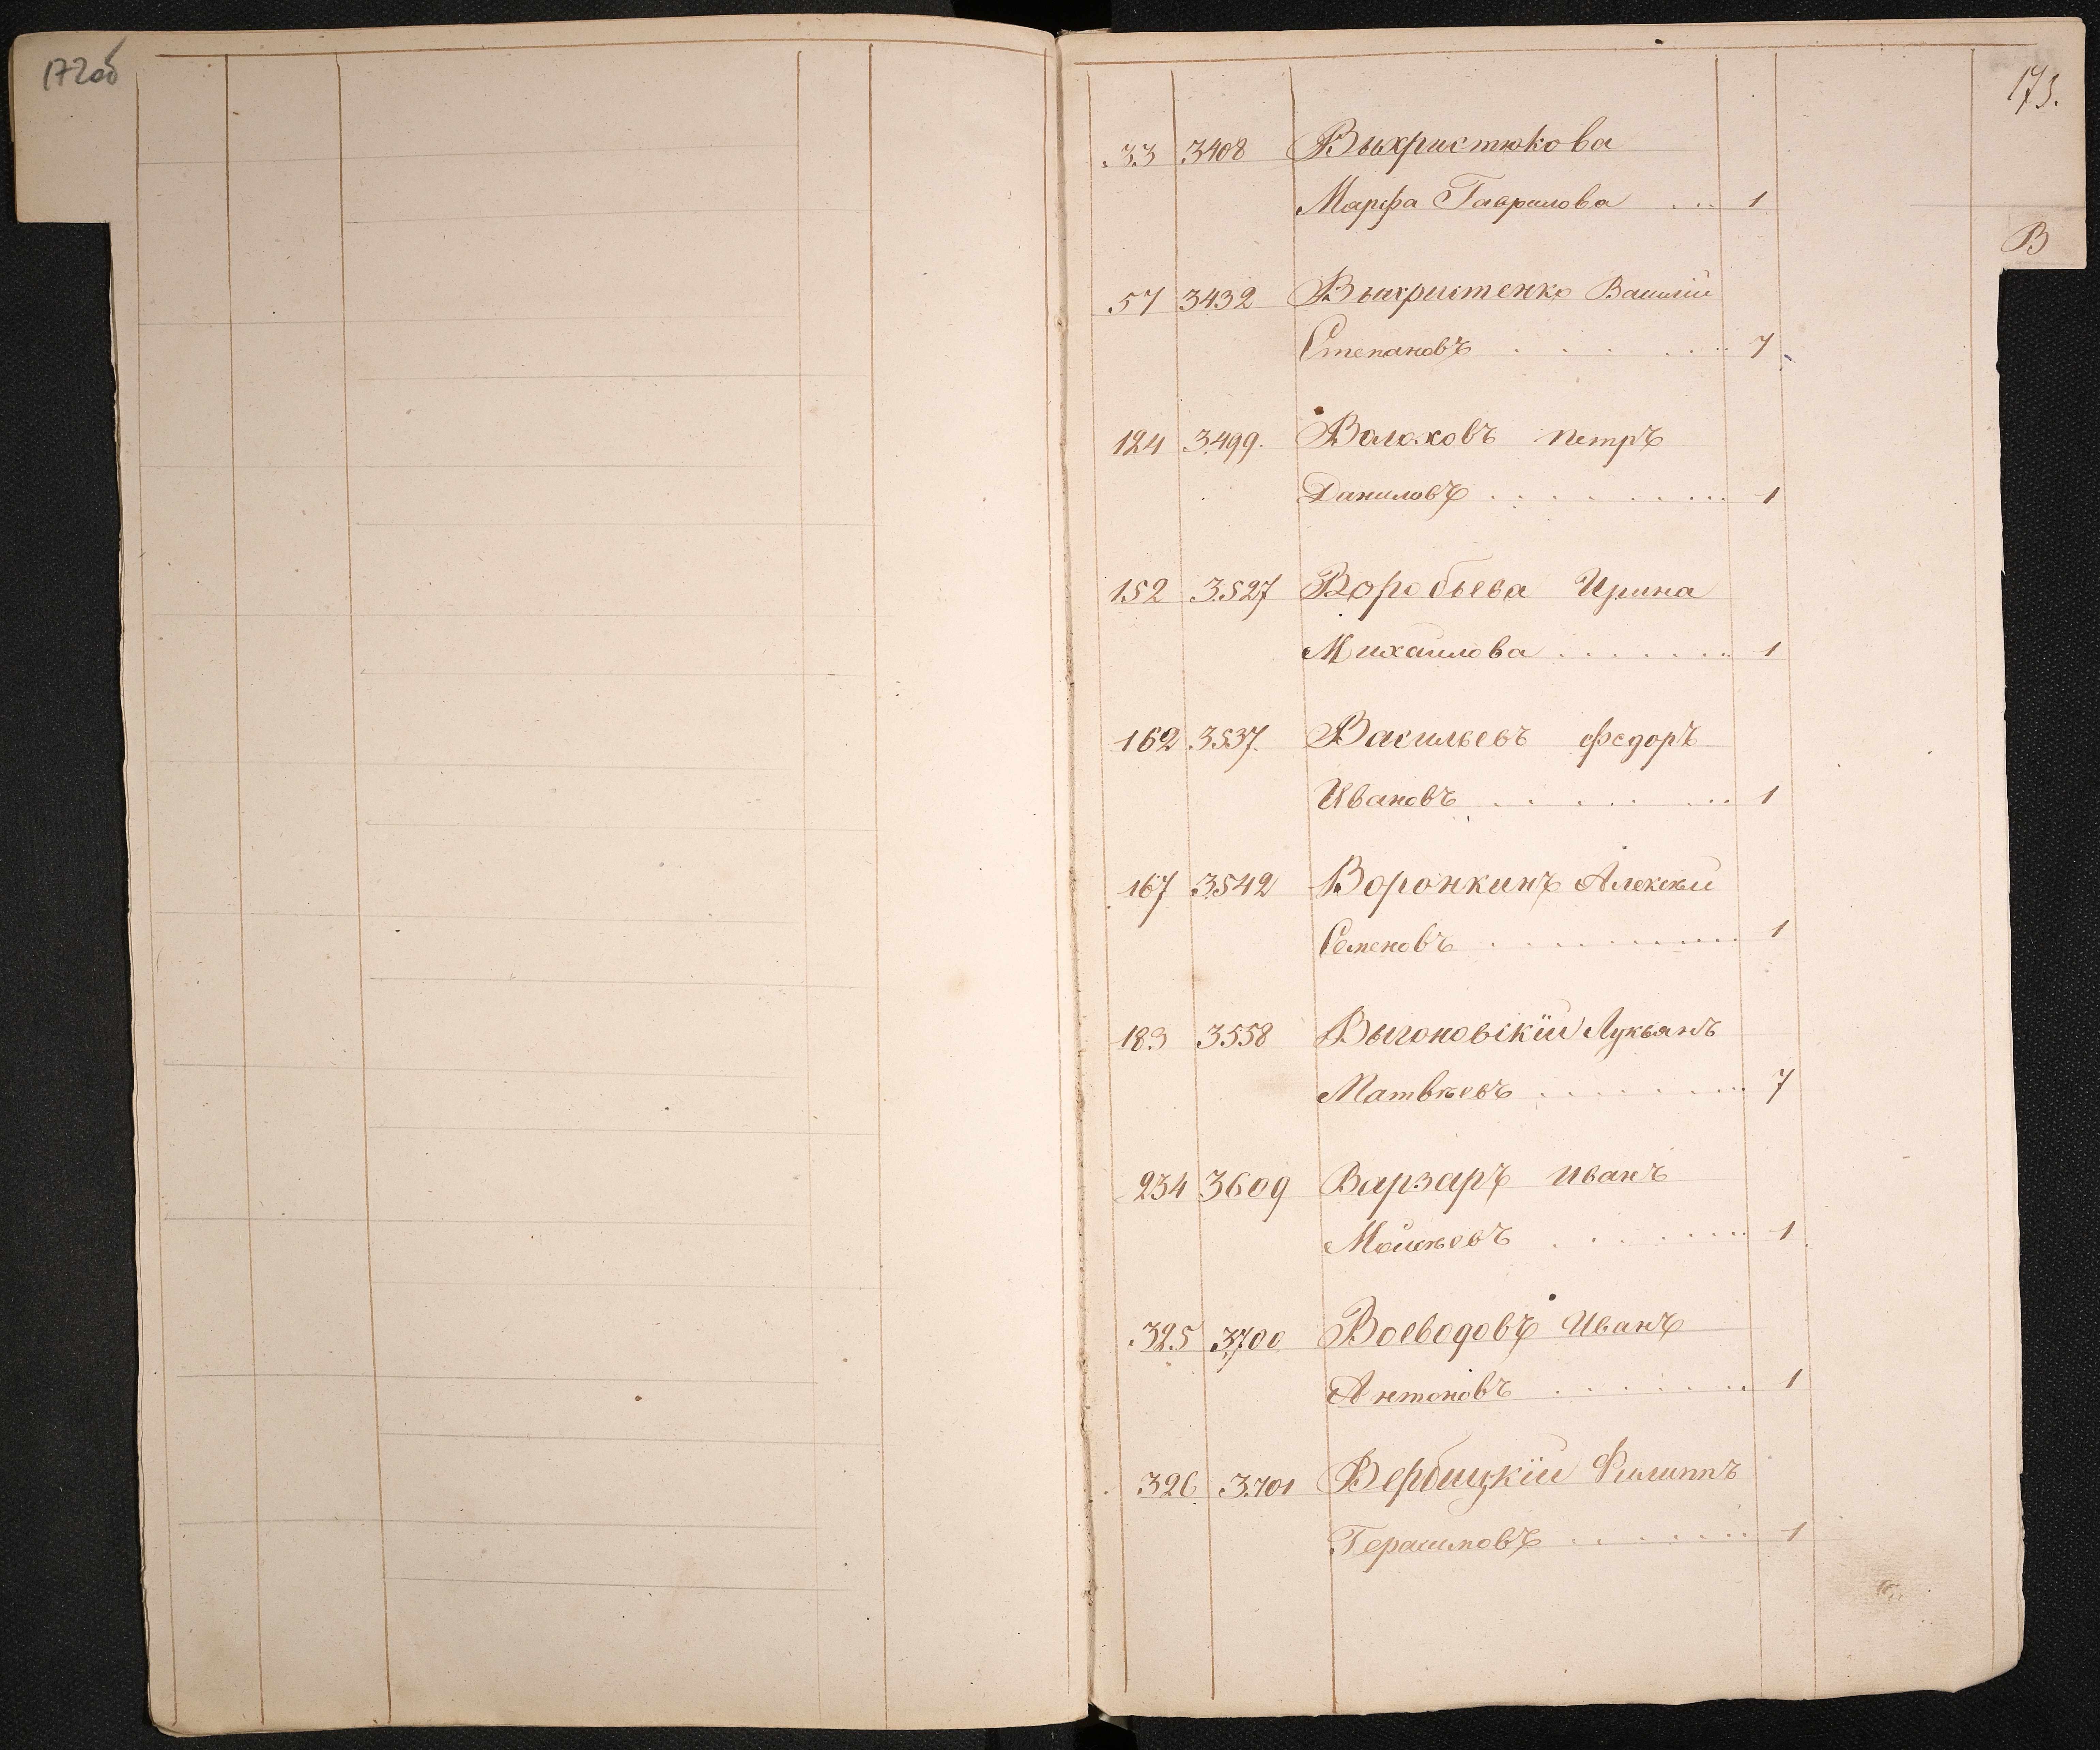 172об
173.
В
33 3408 Выхристюкова
Марфа Гаврилова ... 1
57 3432 Выхристенко Василій
Степановъ ....... 7
124 3499. Волоховъ петръ
Даниловъ ......... 1
152 3527 Воробьева Ирина
Михаилова ....... 1
162 3537. Васильевъ федоръ
Ивановъ ........ 1
167 3542 Воронкинъ Алексѣй
Семеновъ ......... 1
183 3558 Выгоновскій Лукьянъ
Матвѣевъ ....... 7
234 3609 Варзаръ иванъ
Моисѣевъ ....... 1
325 3700 Воеводовъ Иванъ
Антоновъ ....... 1
326 3701 Вербицкій Филиппъ
Герасимовъ ....... 1